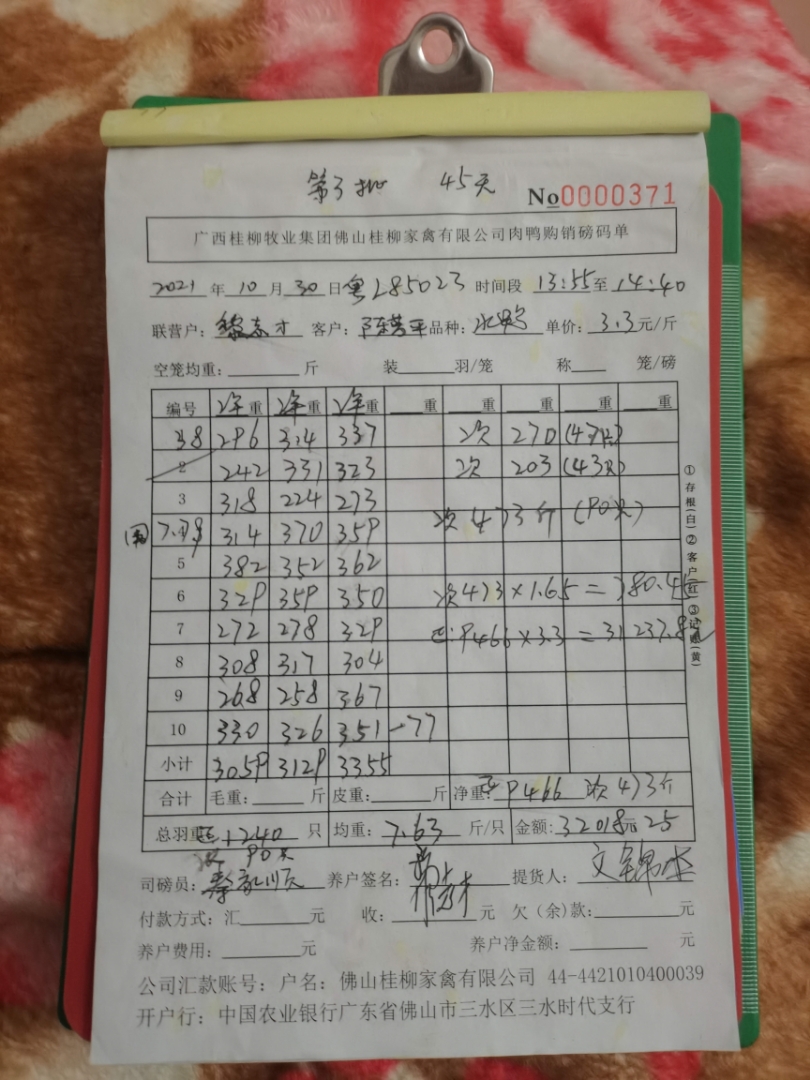 第3批 45天
No0000371
广西桂柳牧业集团佛山桂柳家禽有限公司肉鸭购销磅码单
2021年10月30日粤L85023 时间段 13:55至14:40
联营户：黎志才 客户：陈芳平 品种：水鸭 单价：3.3元/斤
空笼均重：斤 装羽/笼 称笼/磅
编号 净重 净重 净重 重 重 重 重 重
38 296 314 337 次 270 (47只)
2 242 331 323 次 203 (43只)
3 318 224 273
次 473斤 (90只)
7.98 314 370 359
5 382 352 362
6 329 359 350 次473×1.65=780.45
7 272 278 329 正:9466×3.3=31237.8
8 308 317 304
9 268 258 367
10 330 326 351-77
小计 3059 3129 3355
合计 毛重：斤 皮重：斤 净重：正9466 次473斤
总羽重正1240只 均重：7.63斤/只 金额：32018元25
次 90只
司磅员： 养户签名： 提货人：文锦
付款方式：汇元 收：元 欠（余）款：元
养户费用：元 养户净金额：元
公司汇款账号：户名：佛山桂柳家禽有限公司 44-4421010400039
开户行：中国农业银行广东省佛山市三水区三水时代支行
①存根(白)②客户(红)③记账(黄)